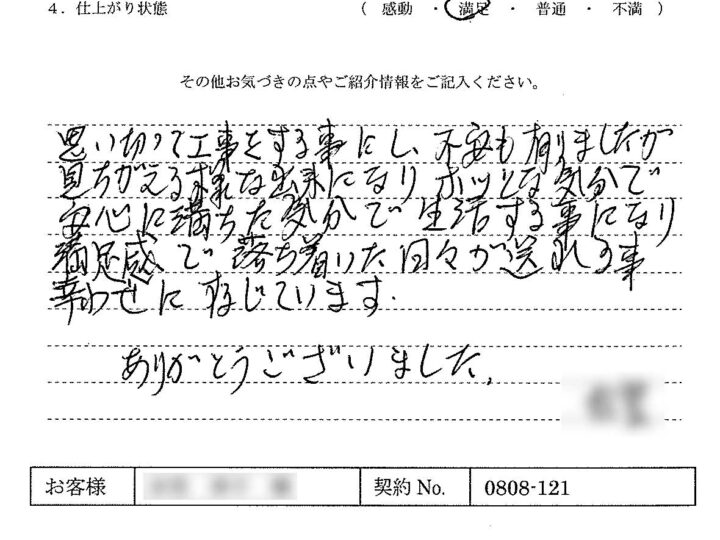 4．仕上がり状態　（ 感動 ・ 満足 ・ 普通 ・ 不満 ）
その他お気づきの点やご紹介情報をご記入ください。
思い切って工事をする事にし、不安も有りましたが
見ちがえる様な出来になり ホッとな気分で
安心に満ちた気分で生活する事になり
満足感で落ち着いた日々が送れる事
幸わせに存じています.
ありがとうございました。
お客様　契約 No.　0808-121